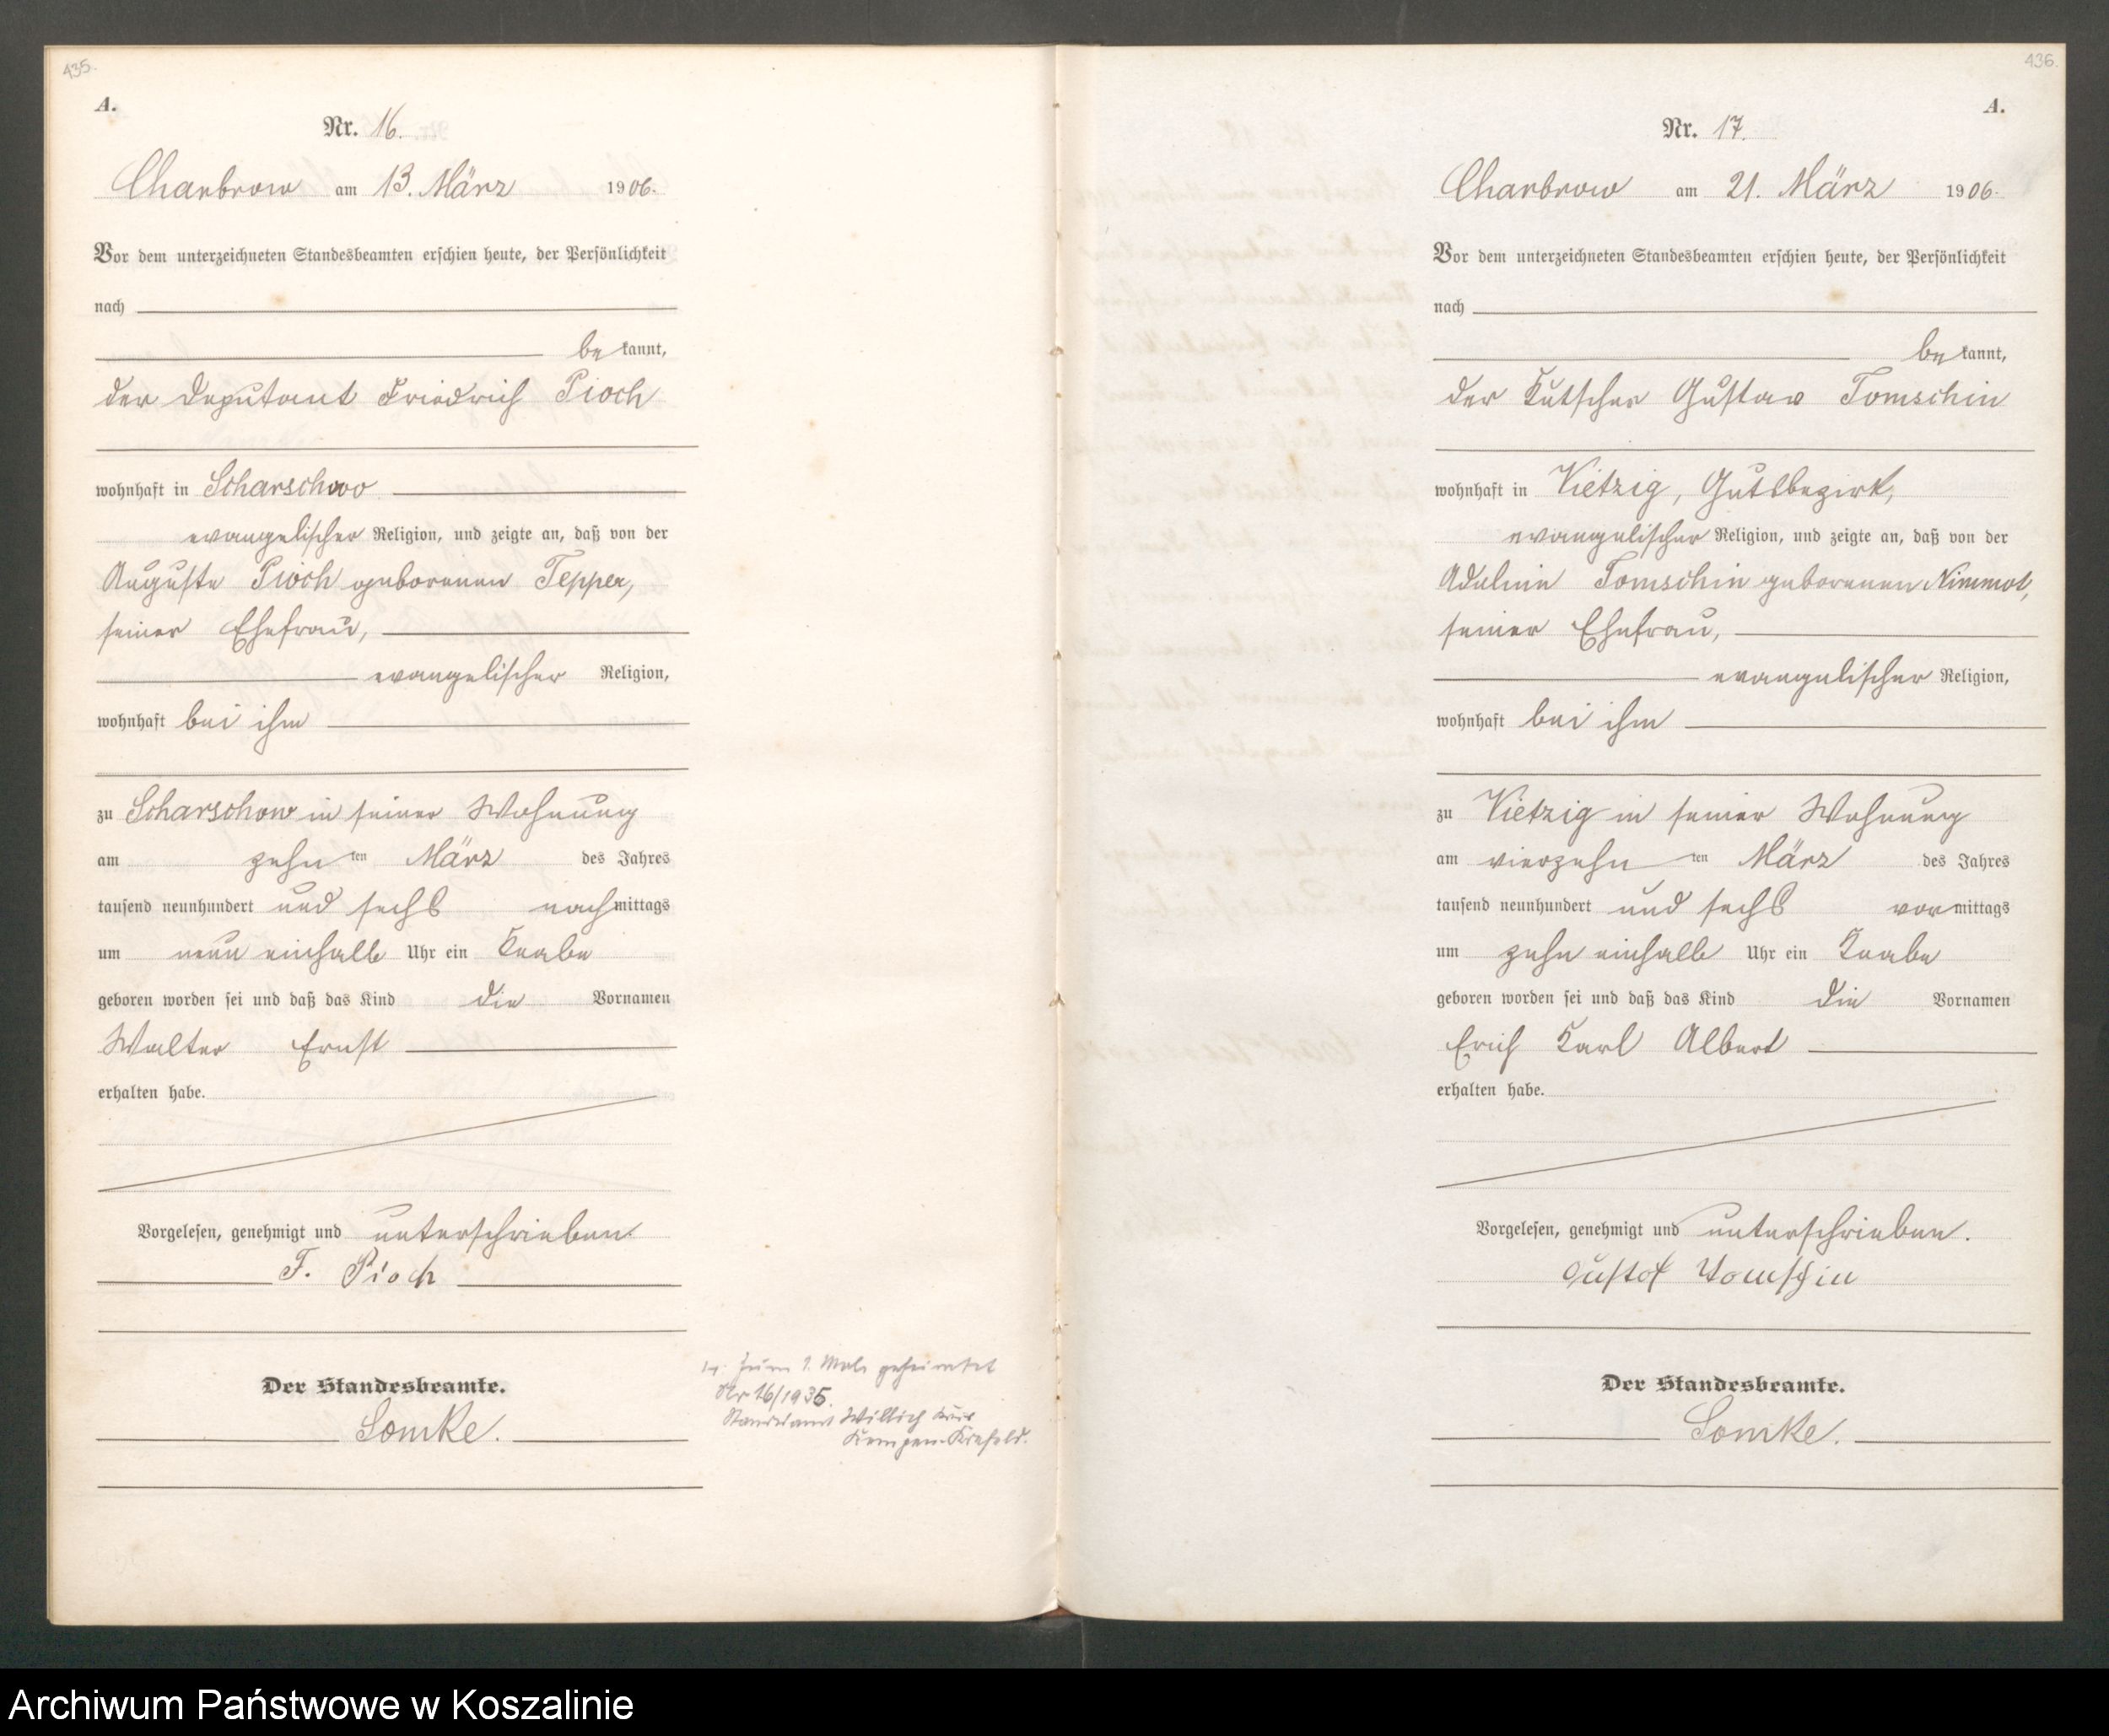 435.
A.
Nr. 16.
Charbrow am 13. März 1906.
Vor dem unterzeichneten Standesbeamten erschien heute, der Persönlichkeit
nach
be kannt,
der Deputant Friedrich Pioch
wohnhaft in Scharschow
evangelischer Religion, und zeigte an, daß von der
Auguste Pioch geborenen Tepper,
seiner Ehefrau,
evangelischer Religion,
wohnhaft bei ihm
zu Scharschow in seiner Wohnung
am zehn ten März des Jahres
tausend neunhundert und sechs nachmittags
um neun einhalb Uhr ein Knabe
geboren worden sei und daß das Kind die Vornamen
Walter Ernst
erhalten habe.
Vorgelesen, genehmigt und unterschrieben
F. Pioch
Der Standesbeamte.
Lomke.
Zum 1. Male geheiratet
Nr 16/1935.
Standesamt Willich Kreis
Kempen-Krefeld.
436.
A.
Nr. 17.
Charbrow am 21. März 1906.
Vor dem unterzeichneten Standesbeamten erschien heute, der Persönlichkeit
nach
be kannt,
der Kutscher Gustav Tomschin
wohnhaft in Vietzig, Gutsbezirk,
evangelischer Religion, und zeigte an, daß von der
Adeline Tomschin geborenen Nimmot,
seiner Ehefrau,
evangelischer Religion,
wohnhaft bei ihm
zu Vietzig in seiner Wohnung
am vierzehn ten März des Jahres
tausend neunhundert und sechs vormittags
um zehn einhalb Uhr ein Knabe
geboren worden sei und daß das Kind die Vornamen
Erich Karl Albert
erhalten habe.
Vorgelesen, genehmigt und unterschrieben.
Gustof Tomschin
Der Standesbeamte.
Lomke.
Archiwum Państwowe w Koszalinie